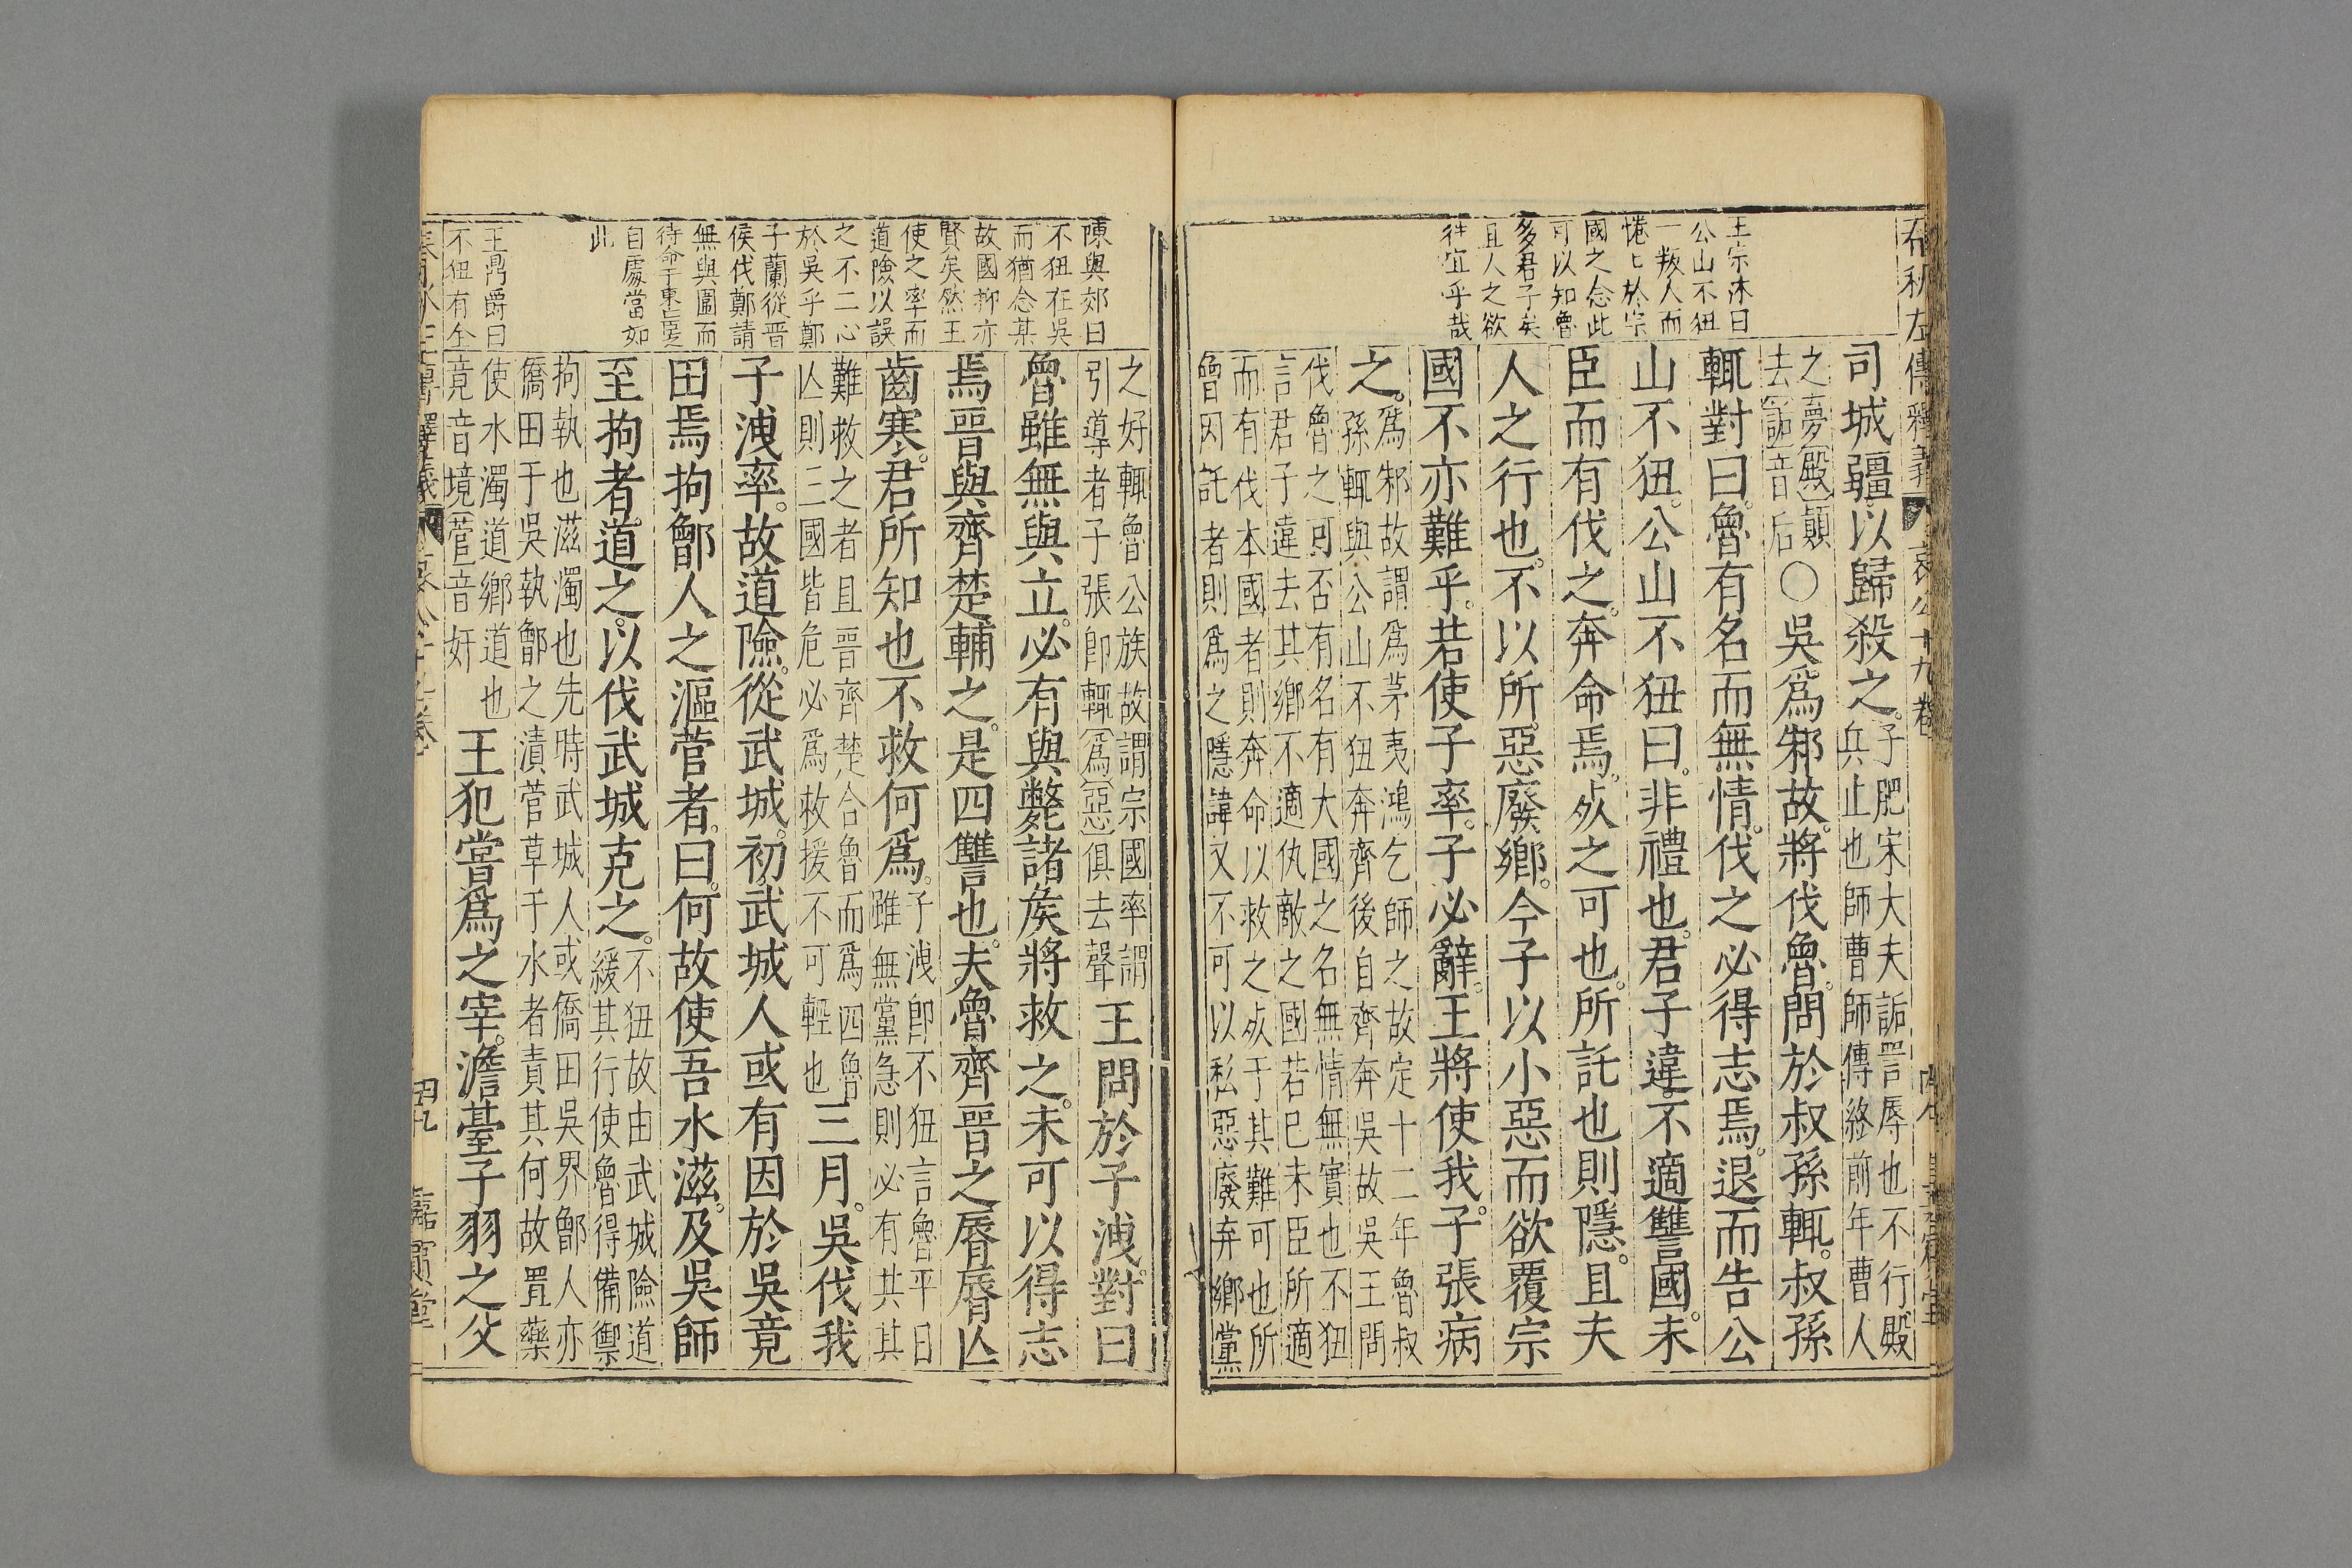 左傳釋義
十九卷
王宗沐曰
公山不狃
一叛人而
惓惓於宗
國之念此
可以知魯
多君子矣
且人之欲
往宜乎哉
司城彊以歸殺之。子肥宋大夫詬詈辱也不行殿
兵止也師曹師傳終前年曹人
之夢〔殿〕顛
去〔詬〕音后〇吳爲邾故。將伐魯。問於叔孫輒。叔孫
輒對曰。魯有名而無情。伐之必得志焉。退而告公
山不狃。公山不狃曰。非禮也。君子違。不適讐國。未
臣而有伐之。奔命焉。死之可也。所託也則隱。且夫
人之行也。不以所惡廢鄉。今子以小惡而欲覆宗
國不亦難乎。若使子率。子必辭。王將使我。子張病
之。爲邾故謂爲茅夷鴻乞師之故定十二年魯叔
孫輒與公山不狃奔齊後自齊奔吳故吳王問
伐魯之可否有名有大國之名無情無實也不狃
言君子違去其鄉不適仇敵之國若已未臣所適
而有伐本國者則奔命以救之死于其難可也所
曾因託者則爲之隱諱又不可以私惡廢弃鄉黨
陳與郊曰
不狃在吳
而猶念其
故國抑亦
賢矣然王
使之率而
道險以誤
之不二心
於吳乎鄭
子蘭從晉
侯伐鄭請
無與圍而
待命于東
自處當如
此
王鼎爵曰
不狃有全
之好輒魯公族故謂宗國率謂
引導者子張卽輒〔爲〕〔惡〕俱去聲王問於子洩。對曰
魯雖無與立。必有與斃。諸矦將救之。未可以得志
焉。晉與齊楚輔之。是四讐也。夫魯齊晉之脣。脣亾
齒寒。君所知也。不救何爲。子洩卽不狃言魯平日
雖無黨急則必有共其
難救之者且晉齊楚合魯而爲四魯
亾則三國皆危必爲救援不可輕也三月。吳伐我
子洩率。故道險。從武城。初。武城人或有因於吳竟
田焉。拘鄫人之漚菅者。曰。何故使吾水滋。及吳師
至。拘者道之。以伐武城克之。不狃故由武城險道
緩其行使魯得備禦
拘執也滋濁也先時武城人或僑田吳界鄫人亦
僑田于吳執鄫之漬菅草于水者責其何故置藥
使水濁道鄉道也
竟音境〔菅〕音奸王犯嘗爲之宰。澹臺子羽之父
四九
嘉賓堂